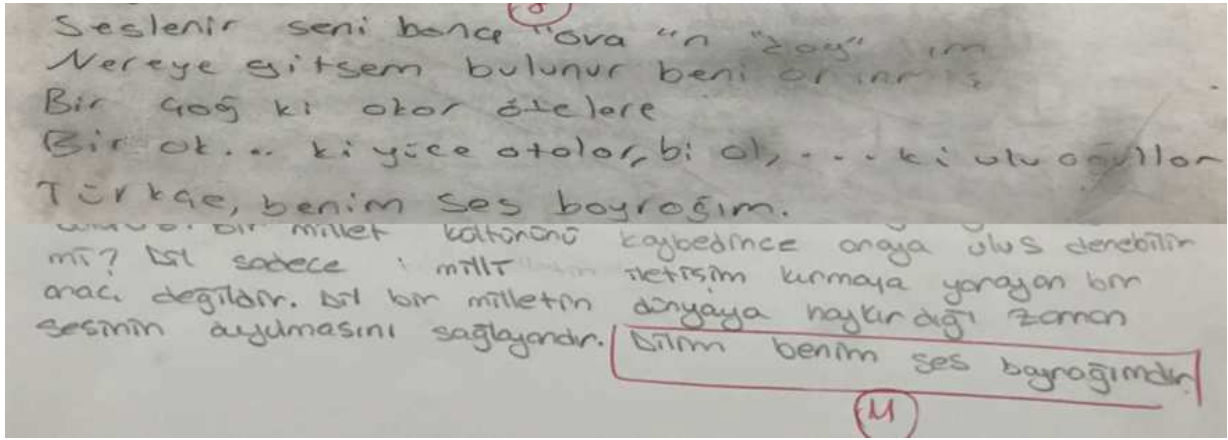 Seslenir seni bana "ova "n "dağ" ım
Nereye gitsem bulunur beni
Bir çağ ki akar ötelere
Bir ok... ki yüce atalar, bi al, ... ki ulu oğullar
Türkçe, benim ses bayrağım.
Bir millet kültürünü kaybedince ulus denebilir
mi? Dil sadece milli iletişim kurmaya yarayan bir
aracı değildir. Dil bir milletin dünyaya haykırdığı zaman
sesinin duyulmasını sağlayandır. Dilim benim ses bayrağımdır
M